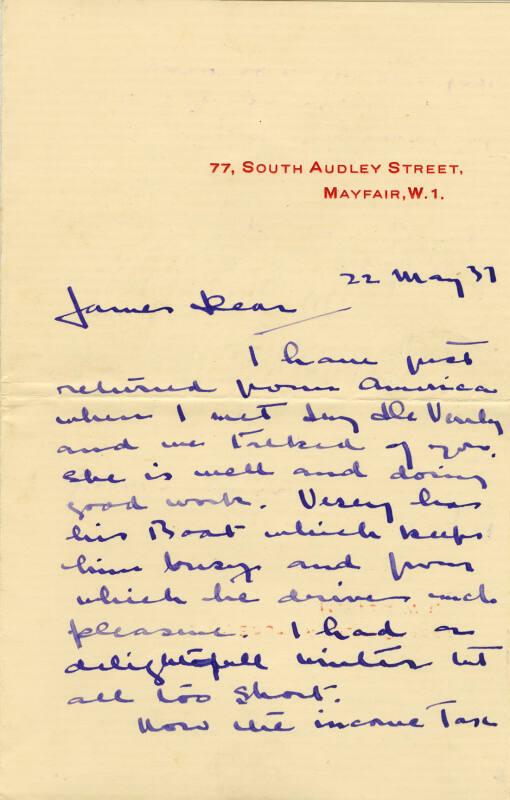 77, SOUTH AUDLEY STREET,
MAYFAIR, W.1.
22 May 37
James Dear
I have just
returned from America
when I met Lucy
and we talked of you.
She is well and doing
good work. Verey has
his Boat which keeps
him busy and from
which he derives much
pleasure. I had a
delightfull winter but
all too short.
Now the income Tax